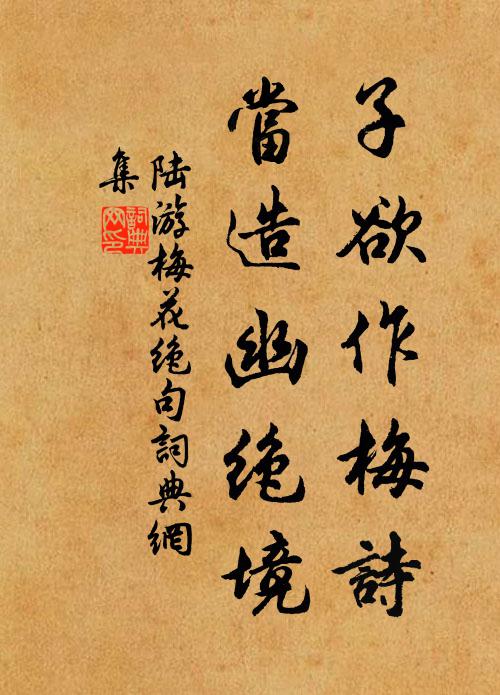 子欲作梅詩
當造幽絶境
陸游梅花絶句詞典網
集
詞典
网印